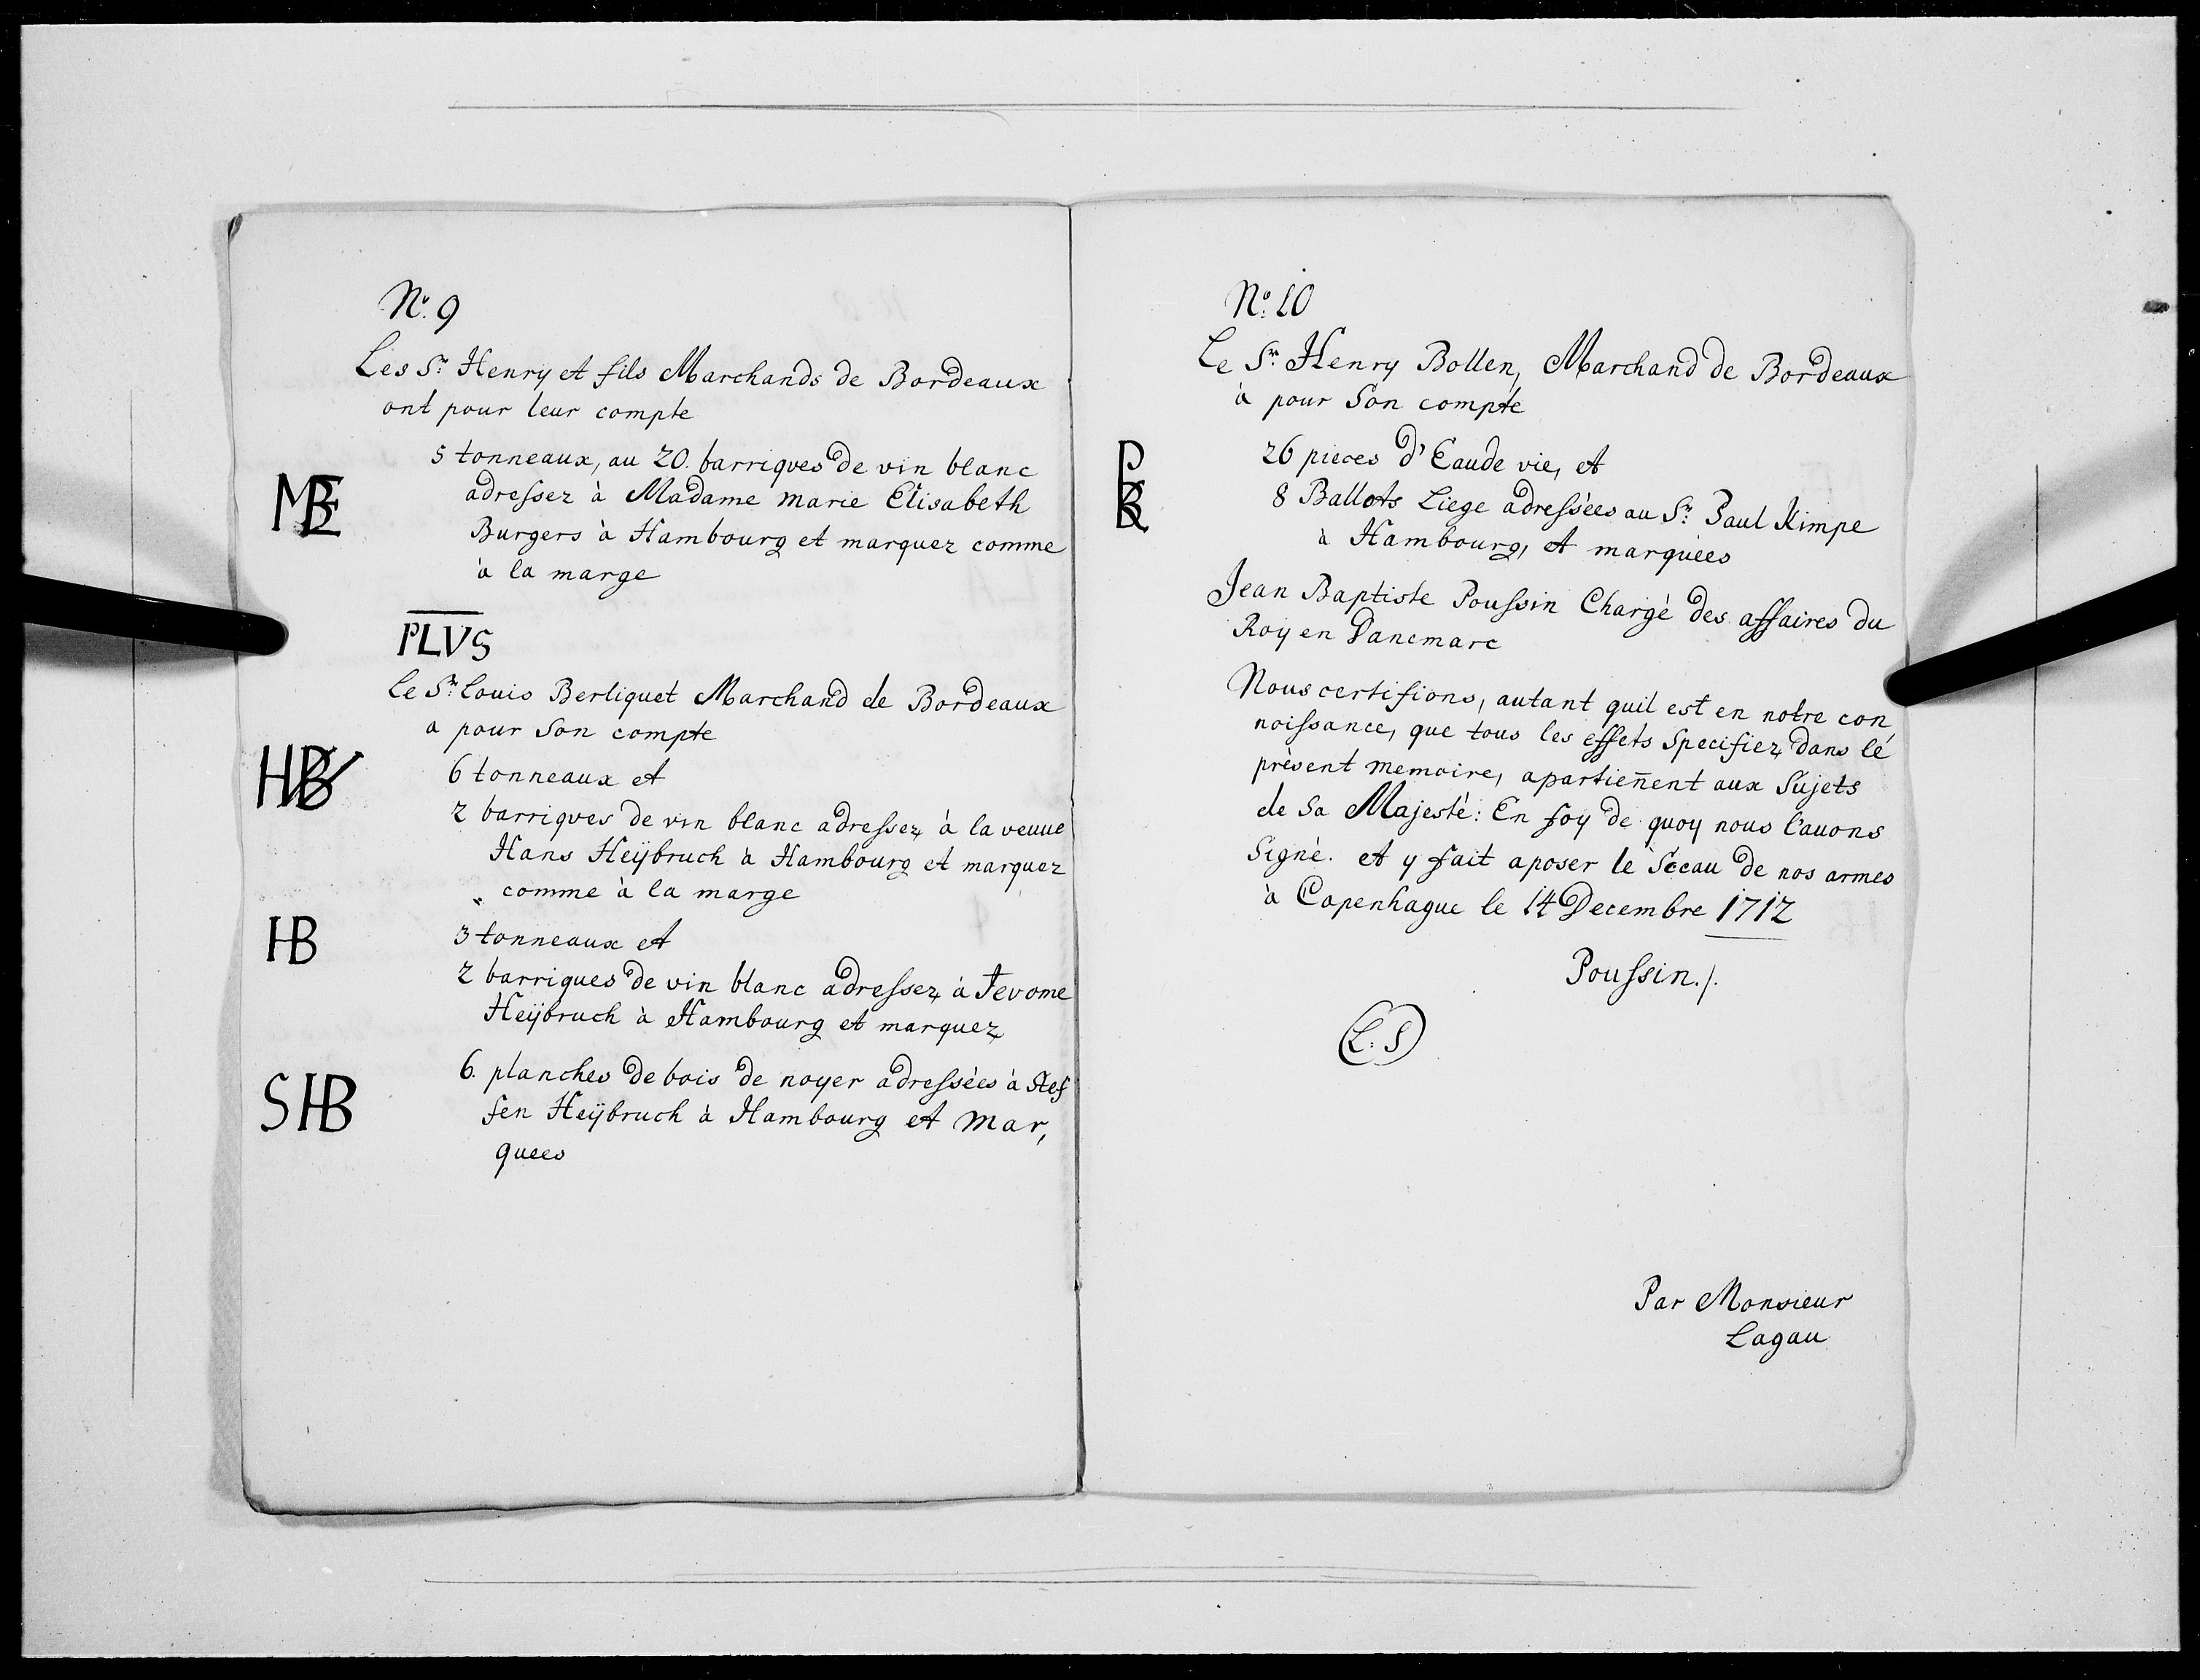 No. 9
Les Sr. Henry et fils Marchands de Bordeaux
ont pour leur compte
5 tonneaux, au 20. barriques de vin blanc
adressez à Madame Marie Elisabeth
MBE
Burgers à Hambourg et marquez comme
à la marge
PLVS
Le Sr. Louis Berliquet Marchand de Bordeaux
a pour Son compte
HB
6 tonneaux et
2 barriques de vin blanc adressez à la veuue
Hans Heÿbruch à Hambourg et marquez
comme à la marge
HB
3 tonneaux et
2 barriques de vin blanc adressez à Jerome
Heÿbruch à Hambourg et marquez
SHB
6. planches de bois de noyer adressées à Stef
fen Heÿbruch à Hambourg et mar,
quees
No. 10
Le Sr. Henry Bollen, Marchand de Bordeaux
à pour Son compte
PK
26 pieces d'Eaude vie, et
8 Ballots Liege adressées au Sr. Paul Kimpe
à Hambourg, et marquées
Jean Baptiste Poussin Chargé des affaires du
Roy en Danemarc
Nous certifions, autant quil est en notre con
noissance, que tous les effets Specifiez dans le
présent memoire, apartieñent aux Sujets
de Sa Majesté: En foy de quoy nous l'auons
Signé. et y fait aposer le Sceau de nos armes
à Copenhague le 14 Decembre 1712
Poussin./.
L. S
Par Monsieur
Lagau